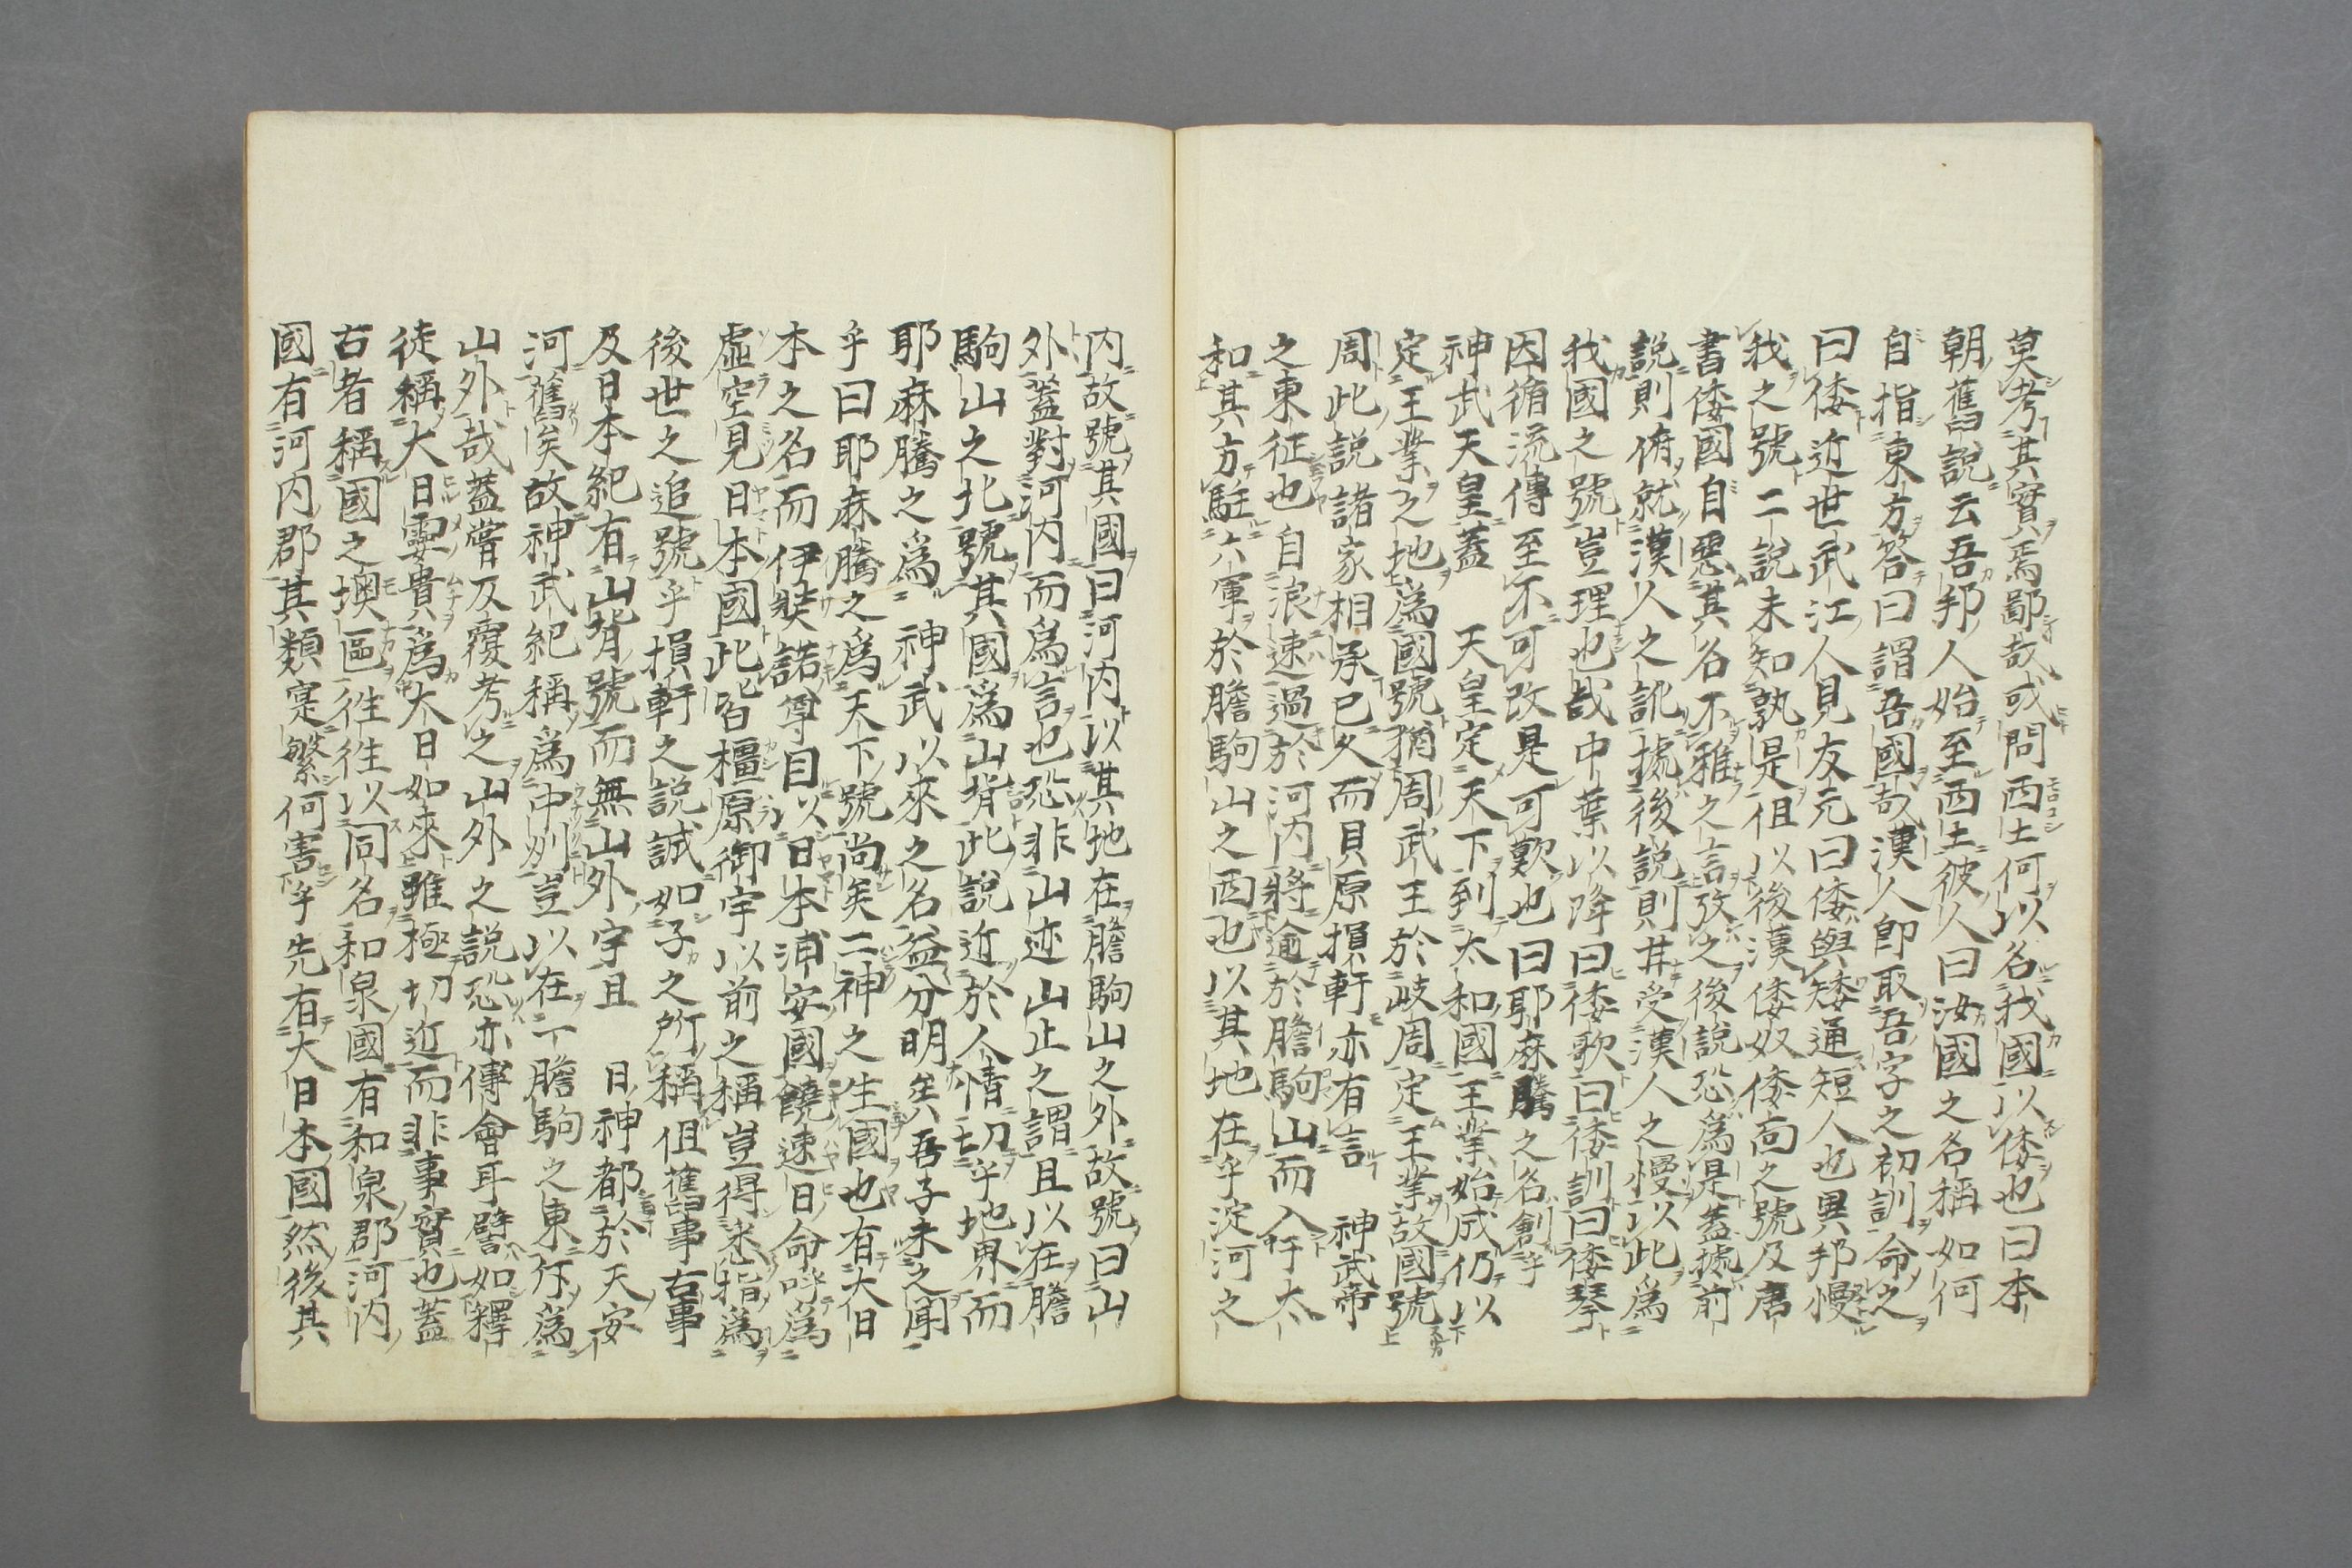 莫考其實焉鄙哉或問西土何以名我國以倭也曰本
朝舊說云吾邦人始至西土彼人曰汝國之名稱如何
自指東方答曰謂吾國哉漢人即取吾字之初訓命之
曰倭近世武江人見友元曰倭與矮通短人也異邦慢
我之號二說未知孰是但以後漢倭奴倭面之號及唐
書倭國自惡其名不雅之言攷之後說恐爲是蓋據前
說則俯就漢人之訛據後說則甘受漢人之慢以此爲
我國之號豈理也哉中葉以降曰倭歌曰倭訓曰倭琴
因循流傳至不可改是可歎也曰耶麻騰之名創乎
神武天皇蓋　天皇定天下到太和國王業始成仍以
定王業之地爲國號猶周武王於岐周定王業故國號
周此說諸家相承已久而貝原損軒亦有言　神武帝
之東征也自浪速過於河内將逾於膽駒山而入乎太
和其方駐六軍於膽駒山之西也以其地在乎淀河之
内故號其國曰河内以其地在膽駒山之外故號曰山
外蓋對河内而爲言也恐非山迹山止之謂且以在膽
駒山之北號其國爲山背此說近於人情切乎地界而
耶麻騰之爲　神武以來之名益分明矣吾子未之聞
乎曰耶麻騰之爲天下號尚矣二神之生國也有大日
本之名而伊弉諾尊目以日本浦安國饒速日命呼爲
虛空見日本國此皆橿原御宇以前之稱豈得悉指爲
後世之追號乎損軒之說誠如子之所稱但舊事古事
及日本紀有山背號而無山外字且　日神都於天安
河舊矣故神武紀稱爲中州豈以在膽駒之東仍爲
山外哉蓋嘗反覆考之山外之說恐亦傳會耳譬如釋
徒稱大日孁貴爲大日如來雖極切近而非事實也蓋
古者稱國之墺區往往以同名和泉國有和泉郡河内
國有河内郡其類寔繁何害乎先有大日本國然後其